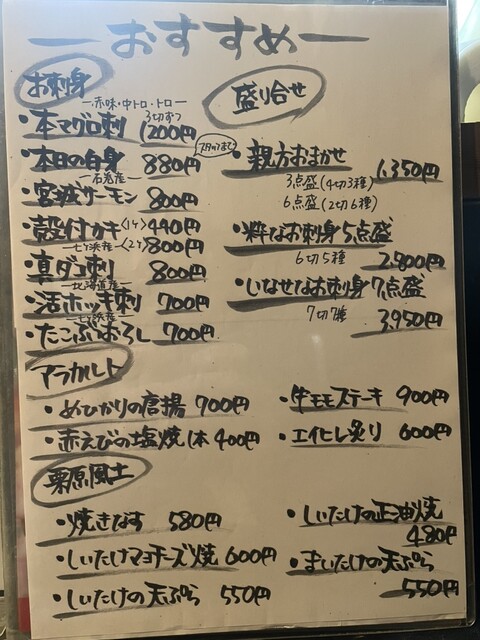 おすすめ
お刺身
赤味・中トロ・トロ
3切ずつ
・本マグロ刺 1200円
・本日の白身 880円
石巻産
・宮城サーモン 800円
・殻付カキ〈1ケ〉440円
七ヶ浜産〈2ケ〉800円
・真ダコ刺 800円
北海道産
・活ホッキ刺 700円
七ヶ浜産
・たこぶつおろし 700円
盛り合せ
・親方おまかせ
3点盛(4切3種) 1,350円
6点盛(2切6種)
・粋なお刺身5点盛
6切5種 2,800円
・いなせなお刺身7点盛
7切7種 3,950円
アラカルト
・めひかりの唐揚 700円
・赤えびの塩焼 1本 400円
・牛モモステーキ 900円
・エイヒレ炙り 600円
栗原風土
・焼きなす 580円
・しいたけマヨチーズ焼 600円
・しいたけの天ぷら 550円
・しいたけの正油焼
480円
・まいたけの天ぷら
550円